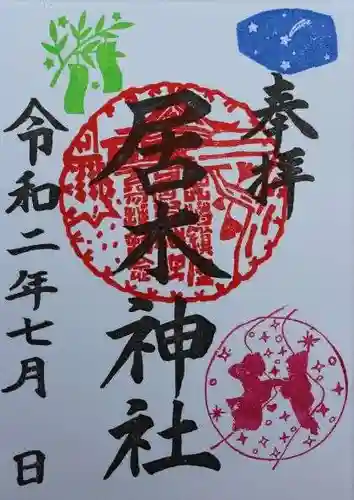 奉拝
居木神社
令和二年七月 日